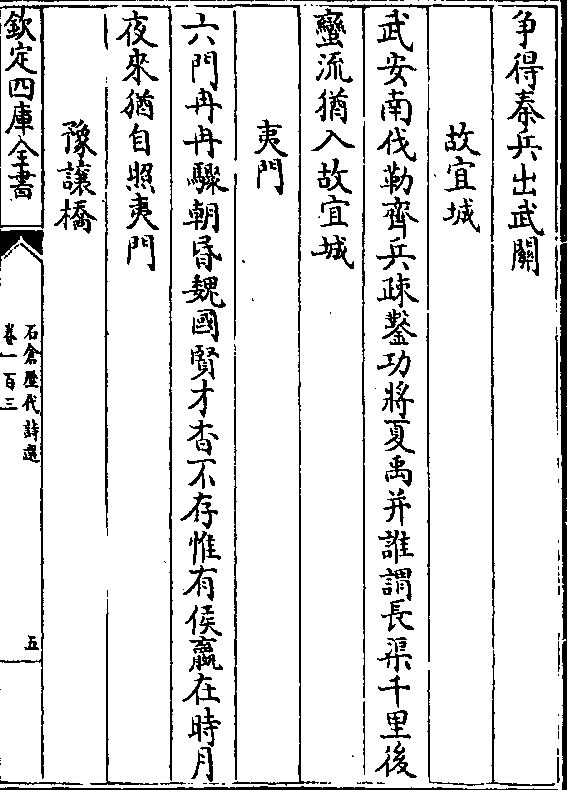 争得秦兵出武關
故宜城
武安南伐勒齊兵疎鑿功將夏禹并誰謂長渠千里後
蠻流猶入故宜城
夷門
六門冉冉驟朝昬魏國賢才杳不存惟有侯嬴在時月
夜來猶自照夷門
豫讓橋
欽定四庫全書
石倉歴代詩選
卷一百三
五